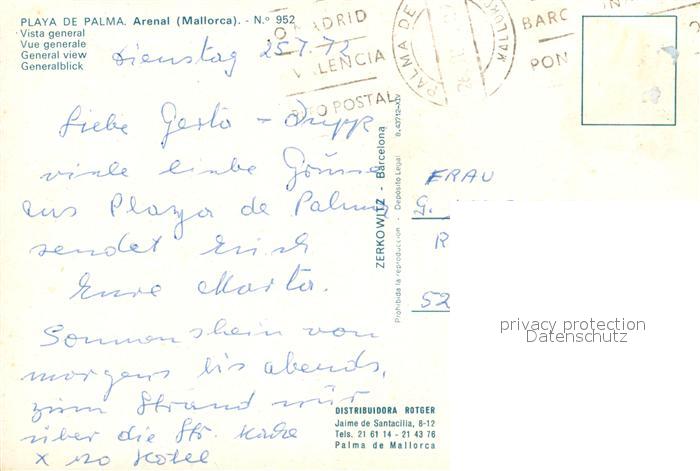 PLAYA DE PALMA. Arenal (Mallorca). - N.º 952
Vista general
Vue generale
General view
Generalblick
Dienstag 25.7.72
MADRID
VALENCIA
POSTAL
PALMA DE
BARC
PON
Liebe Gerto -
viele liebe Grüsse
aus Playa de Palma
sendet Euch
Eure Marta.
Sonnenschein von
morgens bis abends,
zum Strand nur
über die Str.
Hotel
ZERKOWITZ - Barcelona
Prohibida la reproduccion - Depósito Legal B.43712-XIV
FRAU
G.
R
52
privacy protection
Datenschutz
DISTRIBUIDORA ROTGER
Jaime de Santacilia, 8-12
Tels. 21 61 14 - 21 43 76
Palma de Mallorca